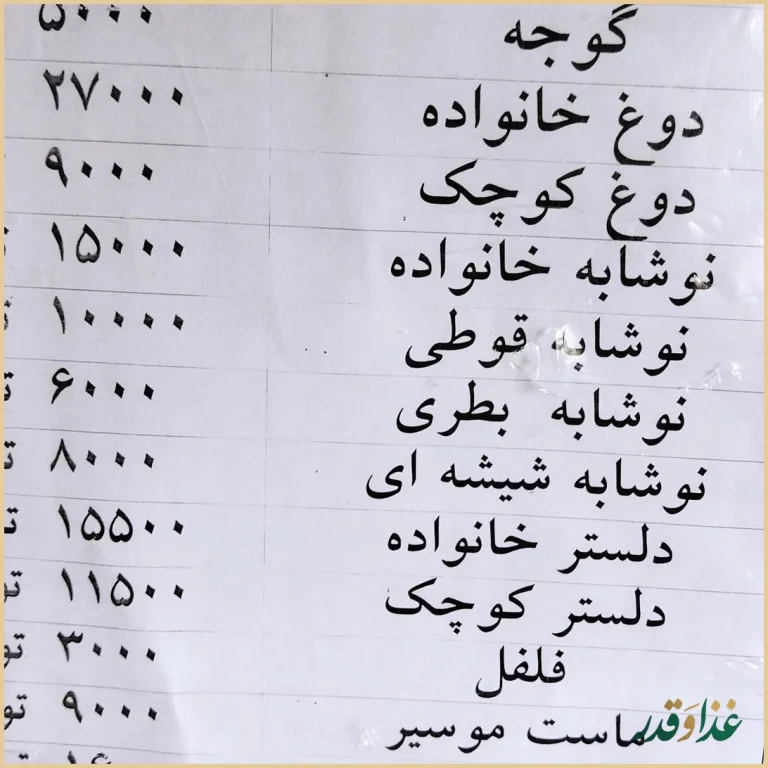 گوجه ۵۰۰۰
دوغ خانواده ۲۷۰۰۰
دوغ کوچک ۹۰۰۰
نوشابه خانواده ۱۵۰۰۰
نوشابه قوطی ۱۰۰۰۰
نوشابه بطری ۶۰۰۰
نوشابه شیشه ای ۸۰۰۰
دلستر خانواده ۱۵۵۰۰
دلستر کوچک ۱۱۵۰۰
فلفل ۳۰۰۰
ماست موسیر ۹۰۰۰
غذا و قدر